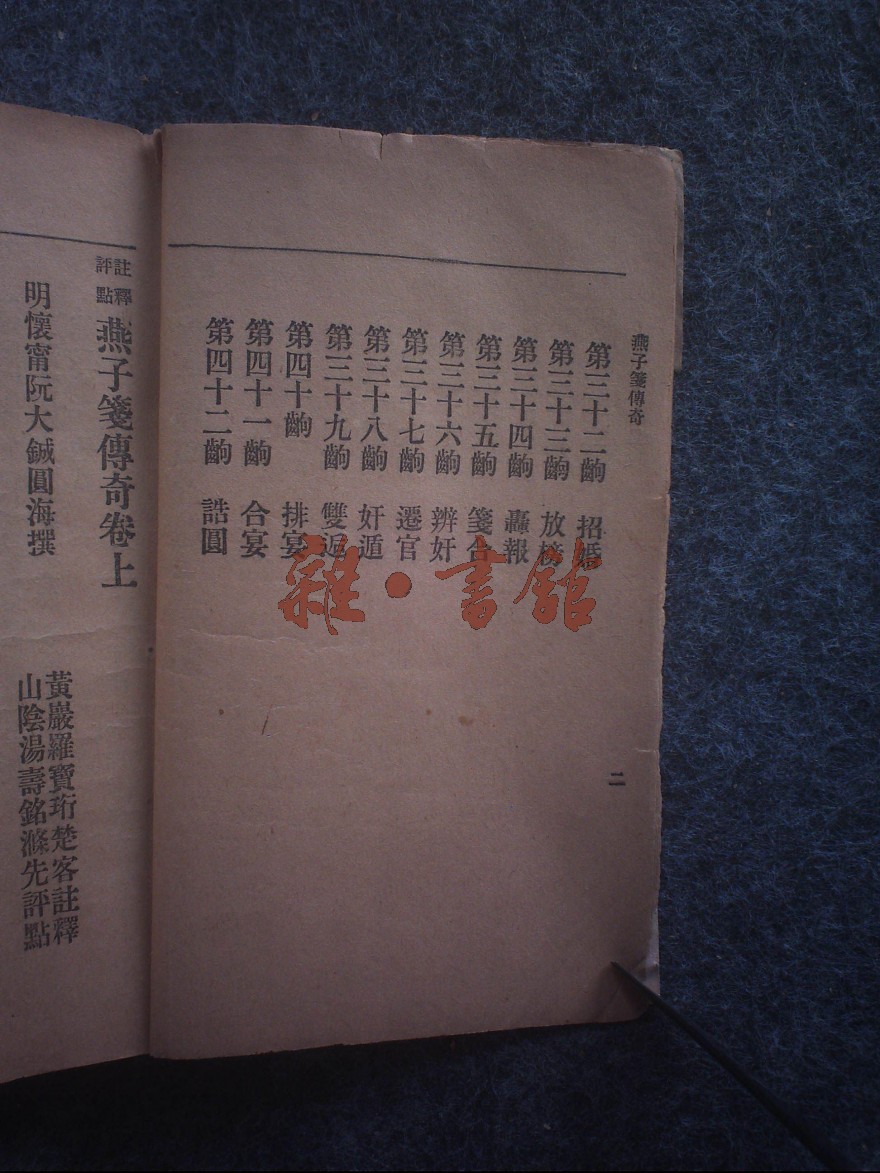 燕子箋傳奇
第三十二齣 招婚
第三十三齣 放榜
第三十四齣 轟報
第三十五齣 箋合
第三十六齣 辨奸
第三十七齣 遷官
第三十八齣 奸遁
第三十九齣 雙逅
第四十齣 排宴
第四十一齣 合宴
第四十二齣 誥圓
二
雜·書館
註釋
評點
燕子箋傳奇卷上
明懷甯阮大鋮圓海撰
黃巖羅寶珩楚客註釋
山陰湯壽銘滌先評點